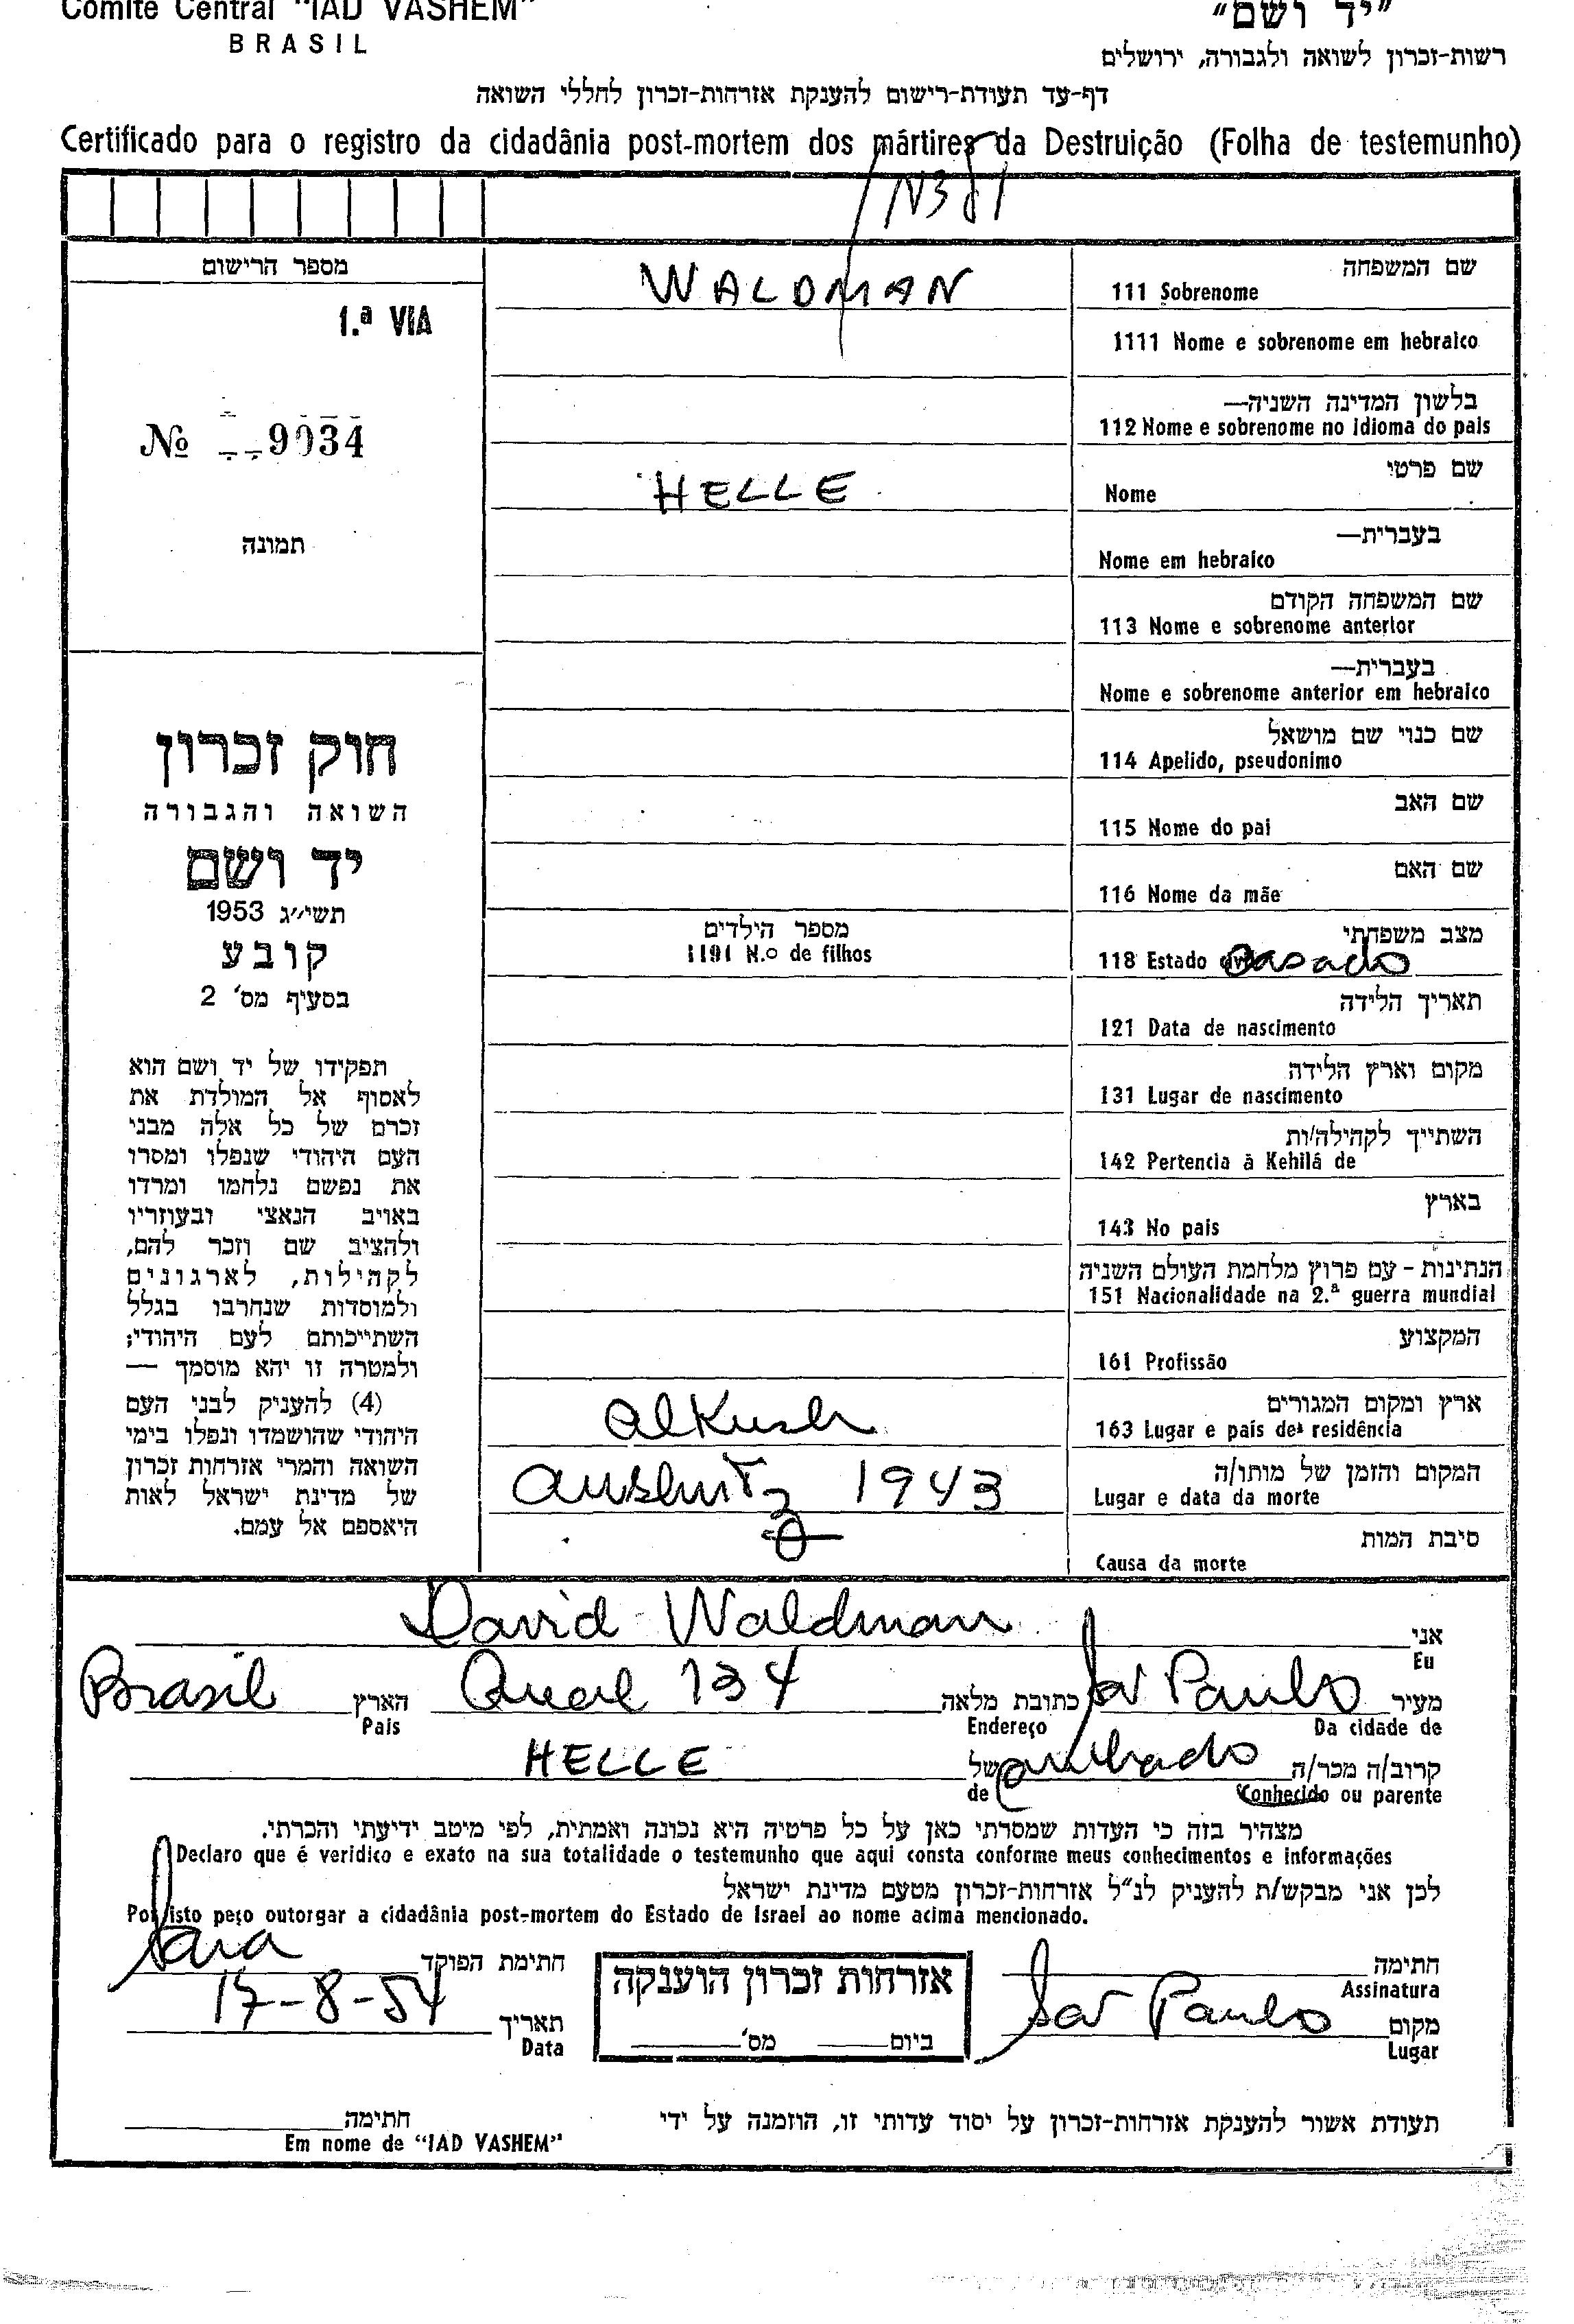 Comité Central "IAD VASHEM"
BRASIL
"יד ושם"
רשות-זכרון לשואה ולגבורה, ירושלים
דף-עד תעודת-רישום להענקת אזרחות-זכרון לחללי השואה
Certificado para o registro da cidadânia post-mortem dos mártires da Destruição (Folha de testemunho)
מספר הרישום
1.ª VIA
№ 9034
תמונה
חוק זכרון
השואה והגבורה
יד ושם
תשי״ג 1953
קובע
בסעיף מס' 2
תפקידו של יד ושם הוא
לאסוף אל המולדת את
זכרם של כל אלה מבני
העם היהודי שנפלו ומסרו
את נפשם נלחמו ומרדו
באויב הנאצי ובעוזריו
ולהציב שם וזכר להם,
לקהילות, לארגונים
ולמוסדות שנחרבו בגלל
השתייכותם לעם היהודי;
ולמטרה זו יהא מוסמך —
(4) להעניק לבני העם
היהודי שהושמדו ונפלו בימי
השואה והמרי אזרחות זכרון
של מדינת ישראל לאות
היאספם אל עמם.
שם המשפחה
111 Sobrenome WALDMAN
1111 Nome e sobrenome em hebraico
בלשון המדינה השניה—
112 Nome e sobrenome no idioma do pais
שם פרטי
Nome HELLE
בעברית—
Nome em hebraico
שם המשפחה הקודם
113 Nome e sobrenome anterior
בעברית—
Nome e sobrenome anterior em hebraico
שם כנוי שם מושאל
114 Apelido, pseudonimo
שם האב
115 Nome do pai
שם האם
116 Nome da mãe
מצב משפחתי
118 Estado casado
מספר הילדים
1191 N.o de filhos
תאריך הלידה
121 Data de nascimento
מקום וארץ הלידה
131 Lugar de nascimento
השתייך לקהילה/ות
142 Pertencia à Kehilá de
בארץ
143 No pais
הנתינות - עם פרוץ מלחמת העולם השניה
151 Nacionalidade na 2.ª guerra mundial
המקצוע
161 Profissão
ארץ ומקום המגורים
163 Lugar e país de residência alkush
המקום והזמן של מותו/ה
Lugar e data da morte 1943
סיבת המות
Causa da morte
אני
Eu David Waldman
מעיר São Paulo כתובת מלאה 134 הארץ Brasil
Da cidade de Endereço Pais
קרוב/ה מכר/ה cunhado של HELLE
Conhecido ou parente de
מצהיר בזה כי העדות שמסרתי כאן על כל פרטיה היא נכונה ואמתית, לפי מיטב ידיעתי והכרתי.
Declaro que é veridico e exato na sua totalidade o testemunho que aqui consta conforme meus conhecimentos e informações
לכן אני מבקש/ת להעניק לנ"ל אזרחות-זכרון מטעם מדינת ישראל
Por isto peço outorgar a cidadânia post-mortem do Estado de Israel ao nome acima mencionado.
חתימה
Assinatura
אזרחות זכרון הוענקה
ביום מס'
חתימת הפוקד Sara
מקום São Paulo
Lugar
תאריך 17-8-54
Data
תעודת אשור להענקת אזרחות-זכרון על יסוד עדותי זו, הוזמנה על ידי
חתימה
Em nome de "IAD VASHEM"